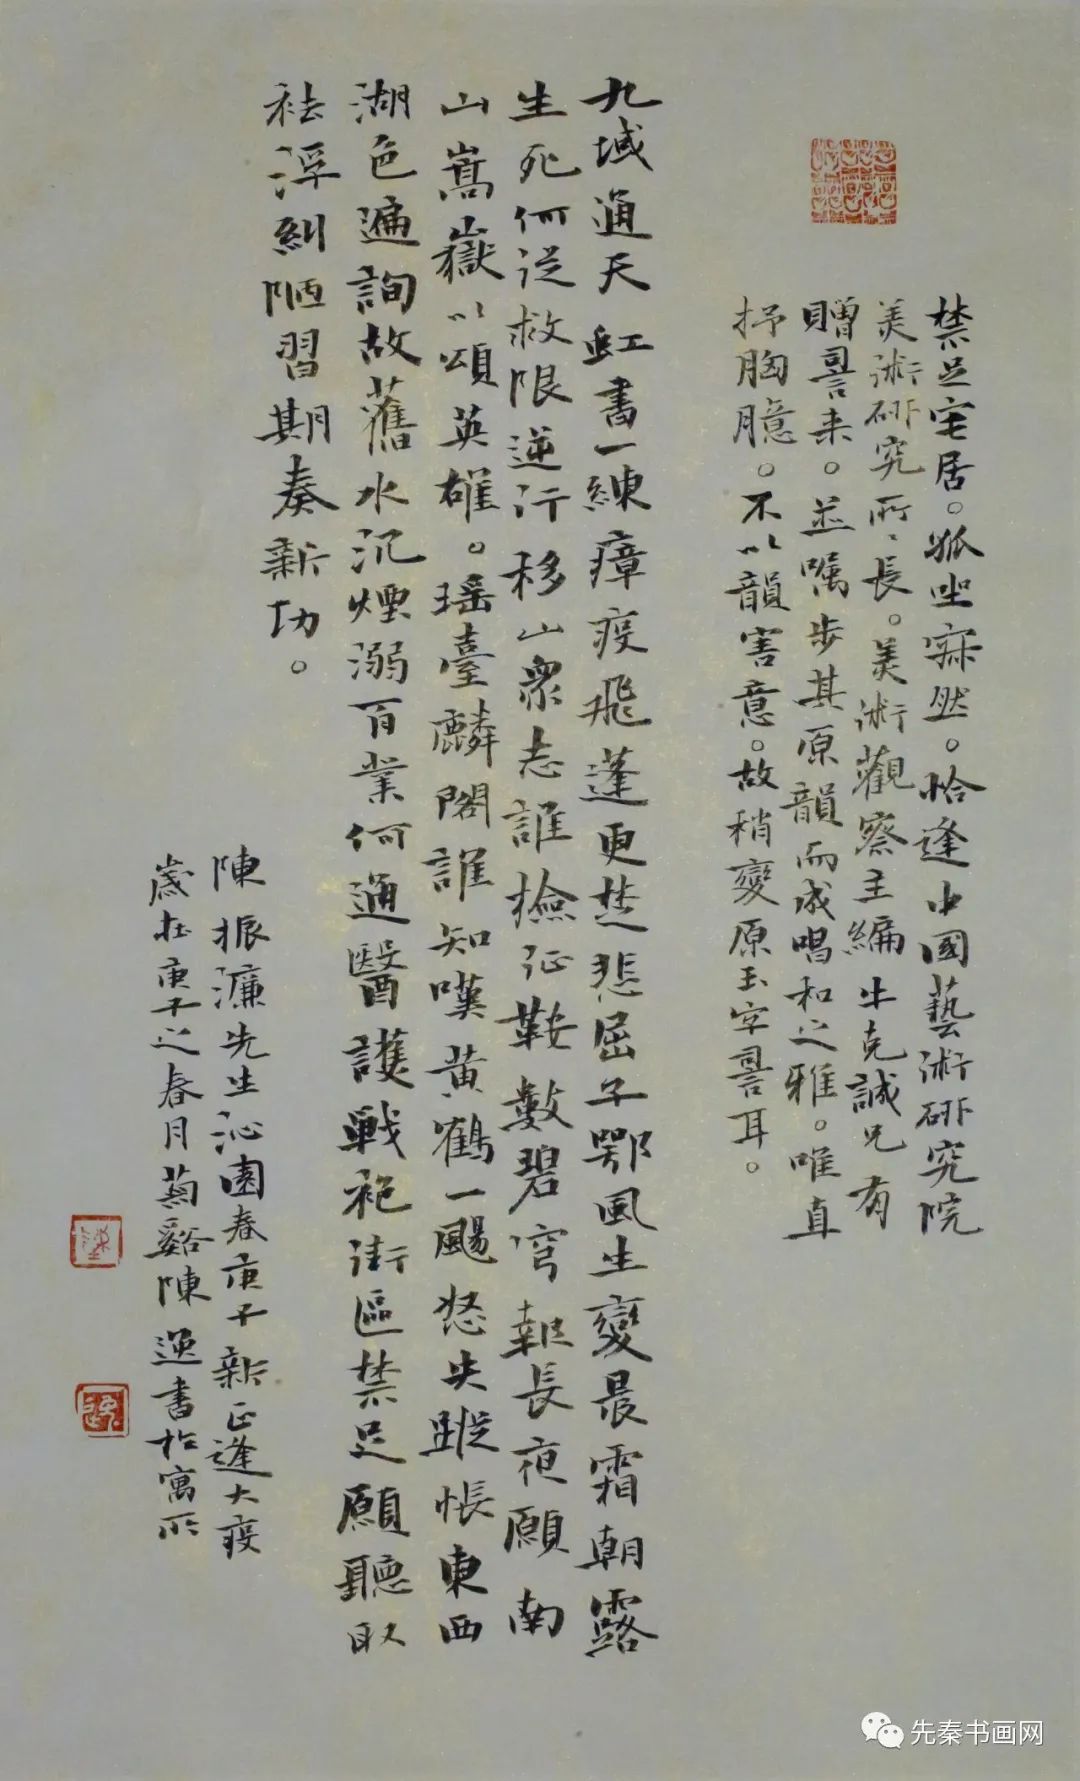 禁足宅居。孤坐寂然。恰逢中國藝術研究院
美術研究所所長。美術觀察主編牛克誠兄有
贈詈来。並囑步其原韻而成唱和之雅。唯直
抒胸臆。不以韻害意。故稍變原玉字詈耳。
九域通天虹書一練瘴疫飛蓬更楚悲屈子鄂風生變晨霜朝露
生死何從救限逆行移山衆志誰撿征鞍數碧穹報長夜願南
山嵩嶽以頌英雄。瑶臺麟閣誰知嘆黄鶴一颺怒失蹤悵東西
湖色遍詢故舊水沉煙溺百業何通醫護戰袍街區禁足願聽取
祛浮糾陋習期奏新功。
陳振濂先生沁園春庚子新正逢大疫
歲在庚子之春月菊谿陳逸書於寓所
先秦书画网